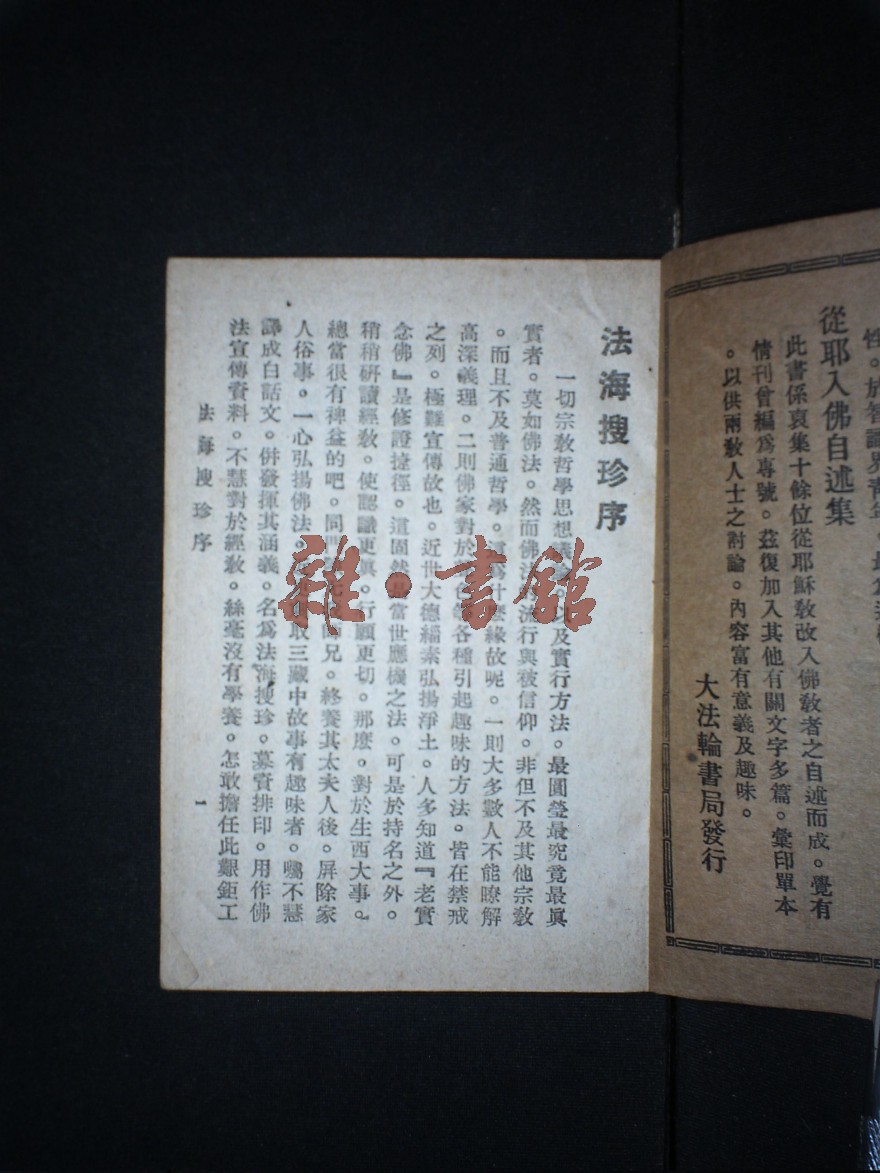 從耶入佛自述集
此書係裒集十餘位從耶穌敎改入佛敎者之自述而成。覺有
情刊曾編爲專號。茲復加入其他有關文字多篇。彙印單本
。以供兩敎人士之討論。內容富有意義及趣味。
大法輪書局發行
法海搜珍序
一切宗敎哲學思想議論以及實行方法。最圓瑩最究竟最眞
實者。莫如佛法。然而佛法流行與被信仰。非但不及其他宗敎
。而且不及普通哲學。這爲什麽緣故呢。一則大多數人不能瞭解
高深義理。二則佛家對於各種引起趣味的方法。皆在禁戒
之列。極難宣傳故也。近世大德緇素弘揚淨土。人多知道『老實
念佛』是修證捷徑。這固然是當世應機之法。可是於持名之外。
稍稍研讀經敎。使認識更眞。行願更切。那麽。對於生西大事。
總當很有裨益的吧。同門師兄。終養其太夫人後。屏除家
人俗事。一心弘揚佛法。取三藏中故事有趣味者。囑不慧
譯成白話文。併發揮其涵義。名爲法海搜珍。募資排印。用作佛
法宣傳資料。不慧對於經敎。絲毫沒有學養。怎敢擔任此艱鉅工
法海搜珍序
1
雜·書館